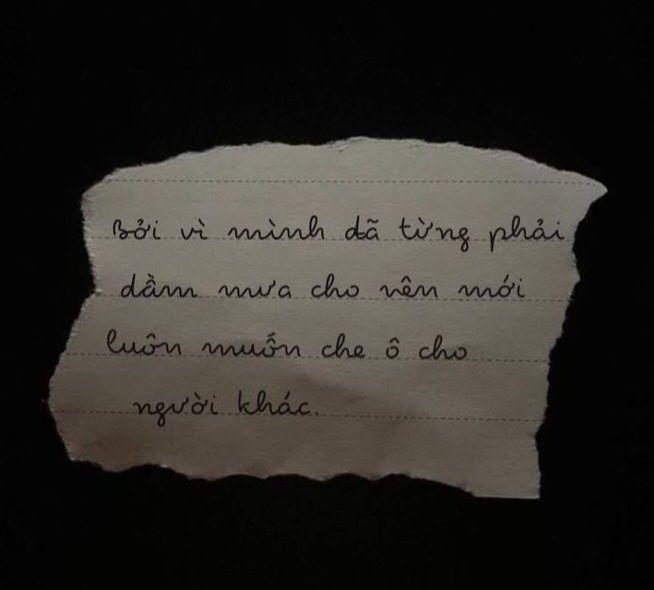 Bởi vì mình đã từng phải
dầm mưa cho nên mới
luôn muốn che ô cho
người khác.